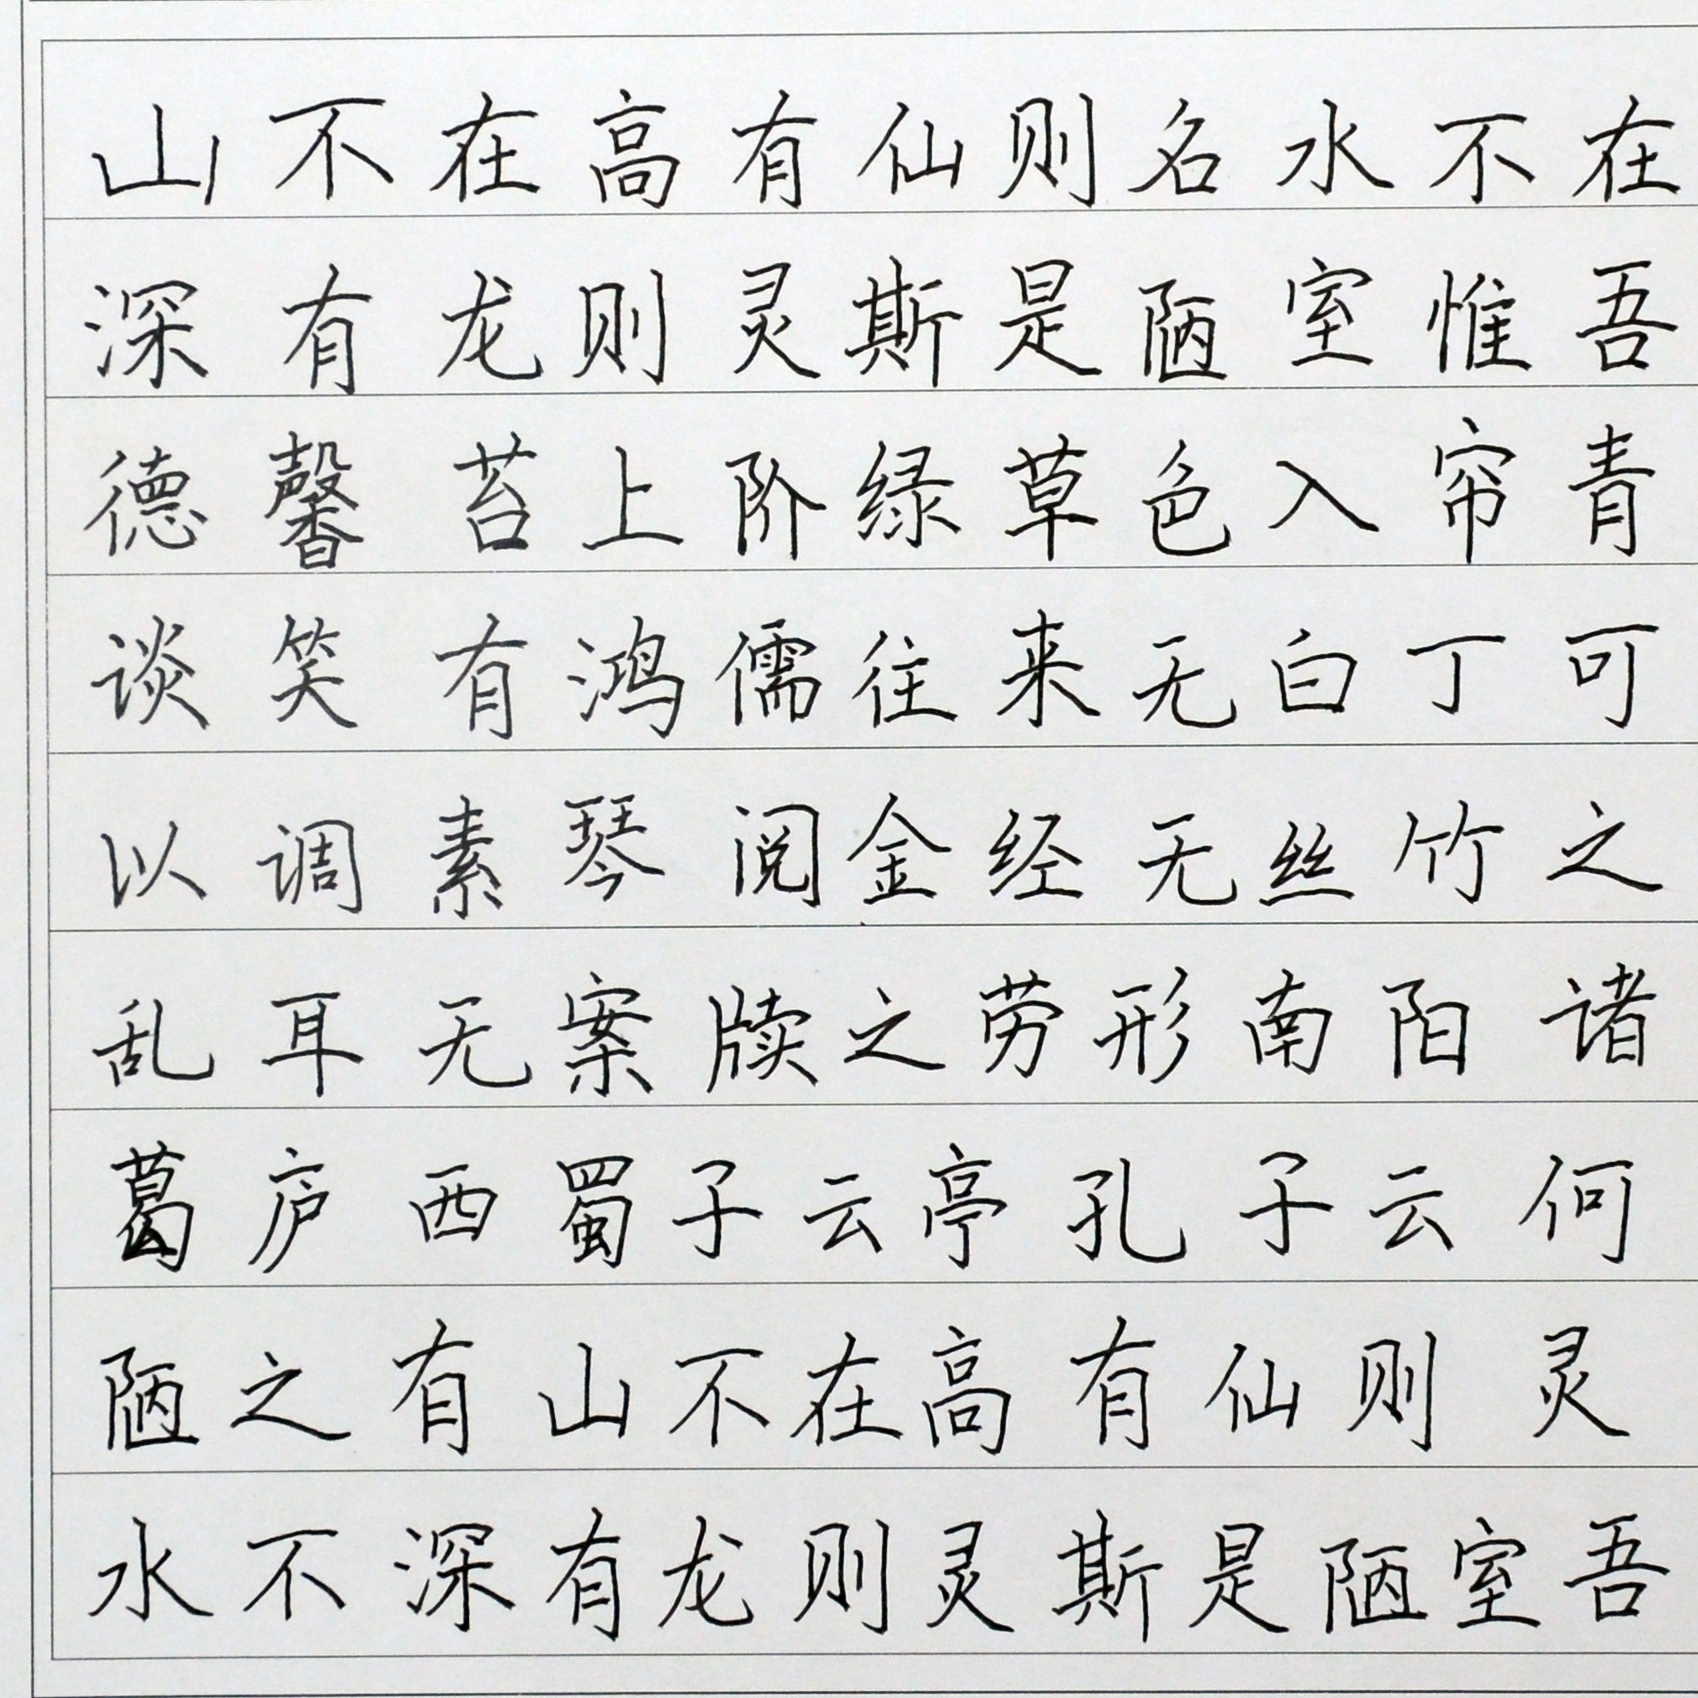 山不在高有仙则名水不在
深有龙则灵斯是陋室惟吾
德馨苔上阶绿草色入帘青
谈笑有鸿儒往来无白丁可
以调素琴阅金经无丝竹之
乱耳无案牍之劳形南阳诸
葛庐西蜀子云亭孔子云何
陋之有山不在高有仙则灵
水不深有龙则灵斯是陋室吾